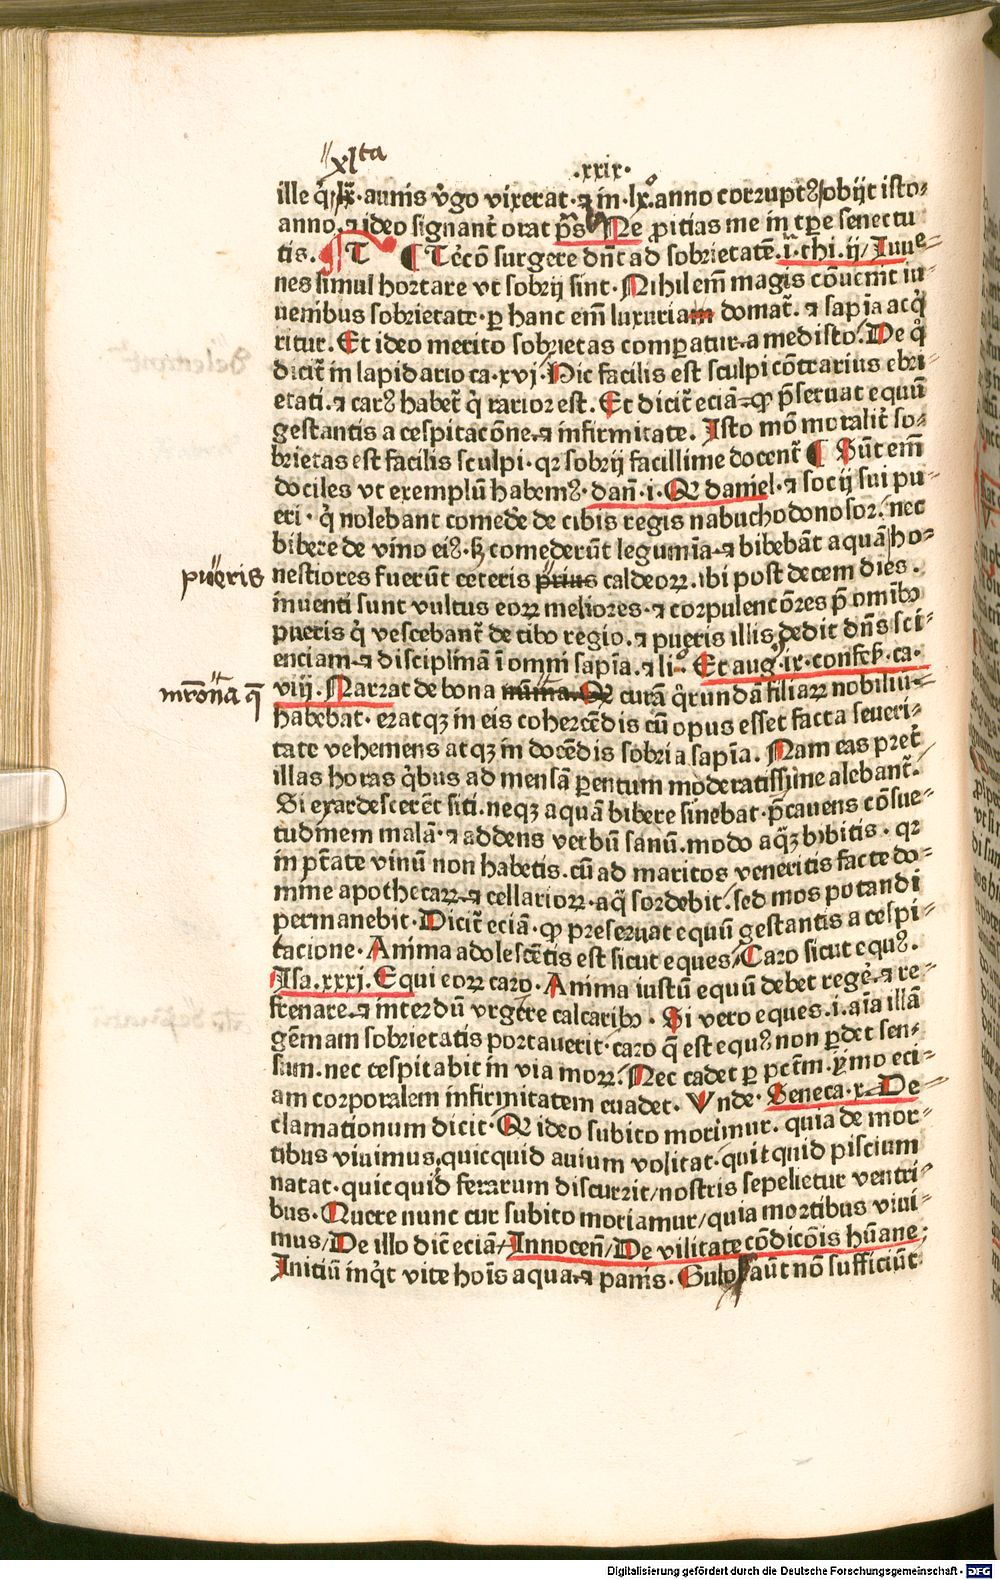 xlta
.xxix.
ille q̇ lx̄. annis v̇go vixerat. ⁊ in .lxº. anno corrupt9 obijt isto⸗
anno. ⁊ ideo signant̃ orat p̄s. Ne ꝓitias me in tꝑe senectu
tis. ¶ T ¶ Tecō surgere dn̄t ad sobrietatē. i. thi. ij / Iuue⸗
nes simul hortare vt sobrij sint. Nihil em̄ magis cōuenit iu⸗
uenibus sobrietate. ꝑ hanc em̄ luxuria domat̃. ⁊ sapīa acq̇
ritur. Et ideo merito sobrietas comꝑatur a medisto. De q̇
dicit̃ in lapidario ca. xvj. Hic facilis est sculpi cōtrarius ebri⸗
etati. ⁊ car9 habet̃ q̇ rarior est. Et dicit̃ eciā ꝙ p̄seruat equū
gestantis a cespitacōne. ⁊ infirmitate. Isto mō moralit̃ so⸗
brietas est facilis sculpi. qꝛ sobrij facillime docent̃ ¶ Sūt em̄
dociles vt exemplū habem9. dan̄. i. Q daniel. ⁊ socij sui pu⸗
eri. q̇ nolebant comedẽe de cibis regis nabuchodonosor. nec
bibere de vino ei9. sꝫ comederūt legumīa ⁊ bibebāt aquā ho⸗
pueris nestiores fuerūt ceteris prius caldeoꝝ. ibi post decem dies.
inuenti sunt vultus eoꝝ meliores. ⁊ corpulencōres p̄ omībꝫ
pueris q̇ vescebant̃ de cibo regio. ⁊ pueris illis dedit dn̄s sci⸗
enciam. ⁊ disciplinā ī omni sapīa. ⁊ li⸗. Et aug9. ix. confess. ca.
mr̄ona q̄ viij. Narrat de bona curā q̇rundā filiaꝝ nobiliū
habebat. eratqꝫ in eis cohercēdis cū opus esset facta seueri⸗
tate vehemens atqꝫ in docēdis sobria sapīa. Nam eas pret̃
illas horas q̇bus ad mensā ꝑentum moderatissime alebant̃.
Si exardescerēt siti. neqꝫ aquā bibere sinebat. p̄cauens cōsue⸗
tudinem malā. ⁊ addens verbū sanū. modo aq̄ꝫ bibitis. qꝛ
in ptāte vinū non habetis. cū ad maritos veneritis facte do⸗
mine apothecaꝝ. ⁊ cellarioꝝ. aq̄ sordebit. sed mos potandi
permanebit. Dicit̃ eciā. ꝙ preseruat equū gestantis a cespi⸗
tacione. Anima adolescētis est sicut eques / Caro sicut equ9.
Isa. xxxj. Equi eoꝝ caro. Anima iustū equū debet regẽ. ⁊ re⸗
frenare. ⁊ interdū vrgere calcaribꝫ. Si vero eques. i. aīa illā
gēmam sobrietatis portauerit. caro q̄ est equ9 non ꝑdet sen⸗
sum. nec cespitabit in via moꝝ. Nec cadet ꝑ pctm̄. ymo eci⸗
am corporalem infirmitatem euadet. Vnde. Seneca. x. De
clamationum dicit. Q ideo subito morimur. quia de mor⸗
tibus viuimus. quicquid auium volitat. quitquid piscium
natat. quicquid ferarum discurrit / nostris sepelietur ventri⸗
bus. Quere nunc cur subito moriamur / quia mortibus viui⸗
mus / De illo dic̄ eciā / Innocen̄ / De vilitate cōdicōis hūane;
Initiū inq̇t vite hoīs aqua ⁊ panis. Gulo aūt nō sufficiūt
Digitalisierung gefördert durch die Deutsche Forschungsgemeinschaft - DFG